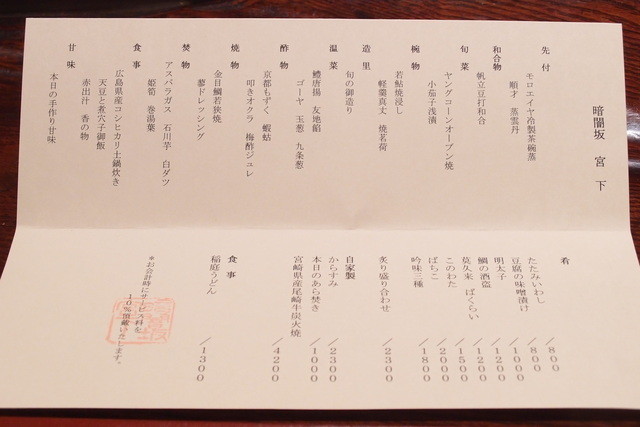 暗闇坂 宮下
先付
モロエイヤ冷製茶碗蒸
順才 蒸雲丹
和合物
帆立豆打和合
旬菜
ヤングコーンオーブン焼
小茄子浅漬
椀物
若鮎焼浸し
軽羹真丈 焼茗荷
造里
旬の御造り
温菜
鱧唐揚 友地餡
ゴーヤ 玉葱 九条葱
酢物
京都もずく 蝦蛄
叩きオクラ 梅酢ジュレ
焼物
金目鯛若狭焼
蓼ドレッシング
焚物
アスパラガス 石川芋 白ダツ
姫筍 巻湯葉
食事
広島県産コシヒカリ土鍋炊き
天豆と煮穴子御飯
赤出汁 香の物
甘味
本日の手作り甘味
肴
たたみいわし /800
豆腐の味噌漬け /800
明太子 /1000
鯛の酒盗 /1200
莫久来 ばくらい /1200
このわた /1500
ばちこ /2000
吟味三種 /1800
炙り盛り合わせ /2300
自家製
からすみ /2300
本日のあら焚き /1000
宮崎県産尾崎牛炭火焼 /4200
食事
稲庭うどん /1300
*お会計時にサービス料を
10%頂戴いたします。